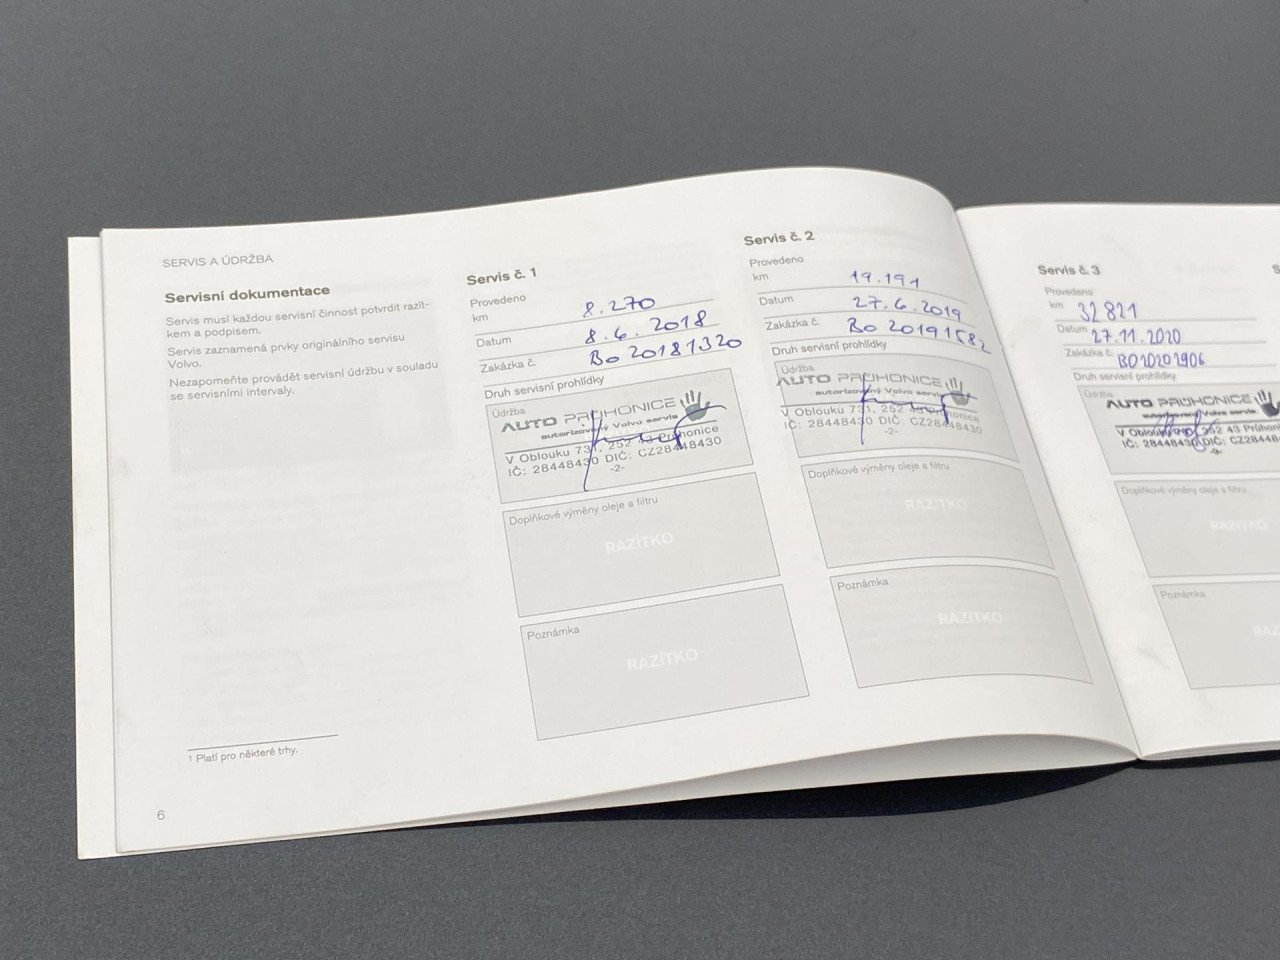 SERVIS A ÚDRŽBA
Servisní dokumentace
Servis musí každou servisní činnost potvrdit razít-
kem a podpisem.
Servis zaznamená prvky originálního servisu
Volvo.
Nezapomeňte provádět servisní údržbu v souladu
se servisními intervaly.
1 Platí pro některé trhy.
6
Servis č. 1
Provedeno
km 8.270
Datum 8.6.2018
Zakázka č. Bo 20181320
Druh servisní prohlídky
Údržba
AUTO PRŮHONICE
autorizovaný Volvo servis
V Oblouku 731, 252 43 Průhonice
IČ: 28448430 DIČ: CZ28448430
-2-
Doplňkové výměny oleje a filtru
RAZÍTKO
Poznámka
RAZÍTKO
Servis č. 2
Provedeno
km 19.191
Datum 27.6.2019
Zakázka č. Bo 20191582
Druh servisní prohlídky
Údržba
AUTO PRŮHONICE
autorizovaný Volvo servis
V Oblouku 731, 252 43 Průhonice
IČ: 28448430 DIČ: CZ28448430
-2-
Doplňkové výměny oleje a filtru
RAZÍTKO
Poznámka
RAZÍTKO
Servis č. 3
Provedeno
km 32821
Datum 27.11.2020
Zakázka č. BO20201906
Druh servisní prohlídky
Údržba
AUTO PRŮHONICE
autorizovaný Volvo servis
V Oblouku 252 43 Průhoni
IČ: 28448430 DIČ: CZ2844
Doplňkové výměny oleje a filtru
RAZÍTKO
Poznámka
RAZ
S